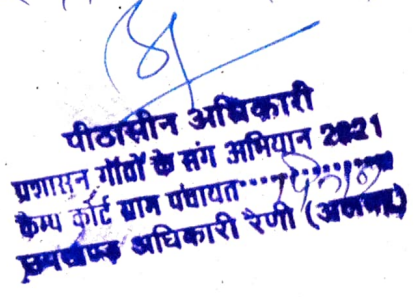 पीठासीन अधिकारी
प्रशासन गाँवों के संग अभियान 2021
केम्प कोर्ट ग्राम पंचायत..............
उपखण्ड अधिकारी रैणी (अलवर)